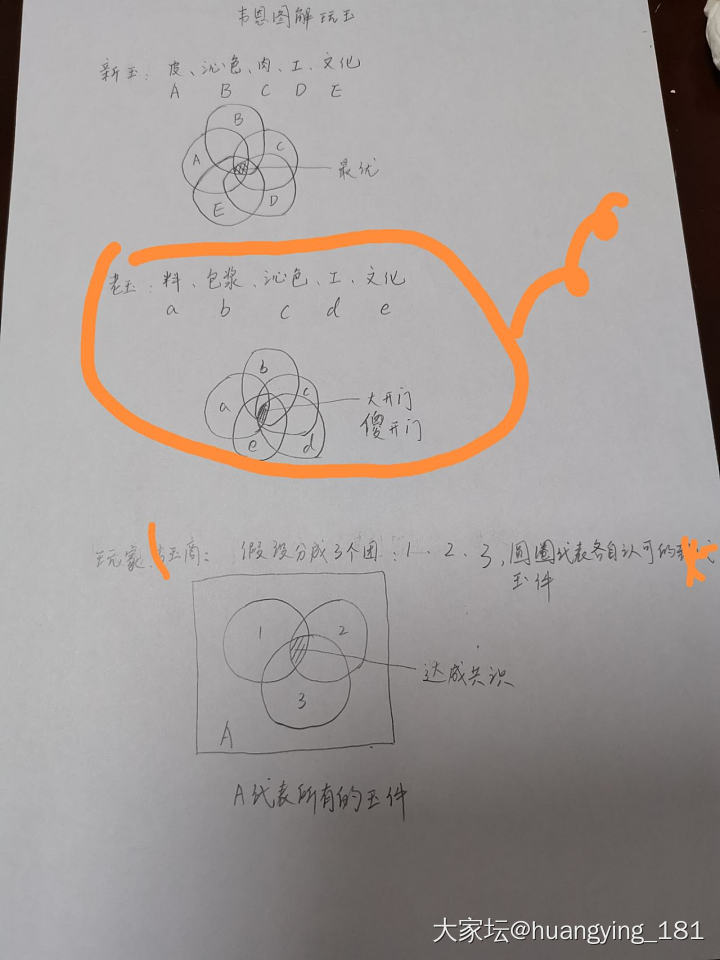 韦恩图解玩玉
新玉：皮、沁色、肉、工、文化
A B C D E
B
A
C
最优
E
D
老玉：料、包浆、沁色、工、文化
a b c d e
b
a
c
大开门
傻开门
e
d
玩家、玉商：假设分成3个团：1、2、3，圆圈代表各自认可的
玉件
1
2
达成共识
3
A
A代表所有的玉件
大家坛@huangying_181